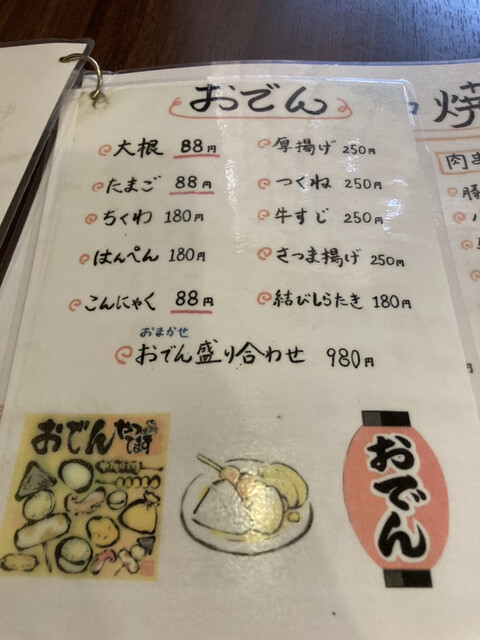 おでん
大根 88円
たまご 88円
ちくわ 180円
はんぺん 180円
こんにゃく 88円
厚揚げ 250円
つくね 250円
牛すじ 250円
さつま揚げ 250円
結びしらたき 180円
おまかせ
おでん盛り合わせ 980円
おでん やってます
おでん
焼
肉
豚